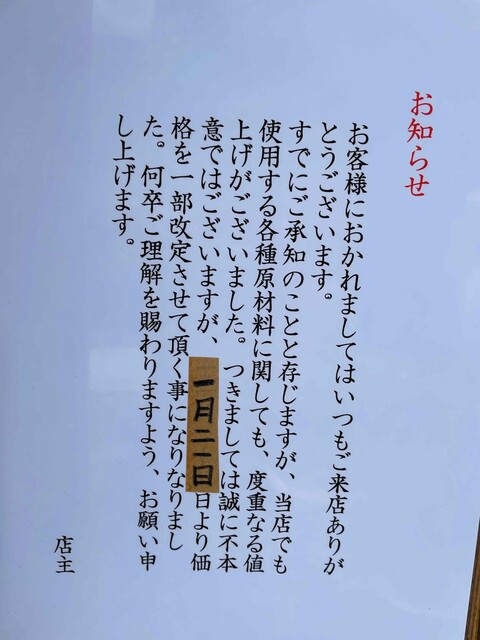 お知らせ
お客様におかれましてはいつもご来店ありが
とうございます。
すでにご承知のことと存じますが、当店でも
使用する各種原材料に関しても、度重なる値
上げがございました。つきましては誠に不本
意ではございますが、一月二一日日より価
格を一部改定させて頂く事になりなりまし
た。何卒ご理解を賜わりますよう、お願い申
し上げます。
店主